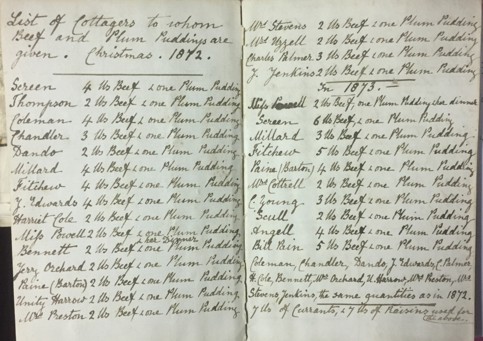 List of Cottagers to whom
Beef and Plum Puddings are
given. Christmas. 1872.
Screen 4 lbs Beef & one Plum Pudding
Thompson 2 lbs Beef & one Plum Pudding
Coleman 4 lbs Beef & one Plum Pudding
Chandler 3 lbs Beef & one Plum Pudding
Dando 2 lbs Beef & one Plum Pudding
Millard 4 lbs Beef & one Plum Pudding
Fitchew 4 lbs Beef & one Plum Pudding
J. Edwards 4 lbs Beef & one Plum Pudding
Harriet Cole 2 lbs Beef & one Plum Pudding
Miss Powell 2 lbs Beef & one Plum Pudding
& her Dinner
Bennett 2 lbs Beef & one Plum Pudding
Jerry Orchard 2 lbs Beef & one Plum Pudding
Paine (Barton) 2 lbs Beef & one Plum Pudding
Unity Harrow 2 lbs Beef & one Plum Pudding
Mrs Preston 2 lbs Beef & one Plum Pudding
Mrs Stevens 2 lbs Beef & one Plum Pudding
Mrs Uzzell 2 lbs Beef & one Plum Pudding
Charles Palmer 3 lbs Beef & one Plum Pudding
J. Jenkins 2 lbs Beef & one Plum Pudding
In 1873.
Miss Powell 2 lbs Beef, one Plum Pudding & her dinner
Screen 6 lbs Beef, & one Plum Pudding
Millard 3 lbs Beef & one Plum Pudding
Fitchew 5 lbs Beef & one Plum Pudding
Paine (Barton) 4 lbs Beef & one Plum Pudding
Mrs Cottrell 2 lbs Beef & one Plum Pudding
C. Young 3 lbs Beef & one Plum Pudding
Scull 2 lbs Beef & one Plum Pudding
Angell 4 lbs Beef & one Plum Pudding
Bill Bin 5 lbs Beef & one Plum Pudding
Coleman, Chandler, Dando, J. Edwards, C. Palmer
H. Cole, Bennett, Mrs Orchard, U. Harrow, Mrs Preston, Mrs
Stevens, Jenkins, the same quantities as in 1872.
7 lbs of Currants, & 7 lbs of Raisins used for
the above.